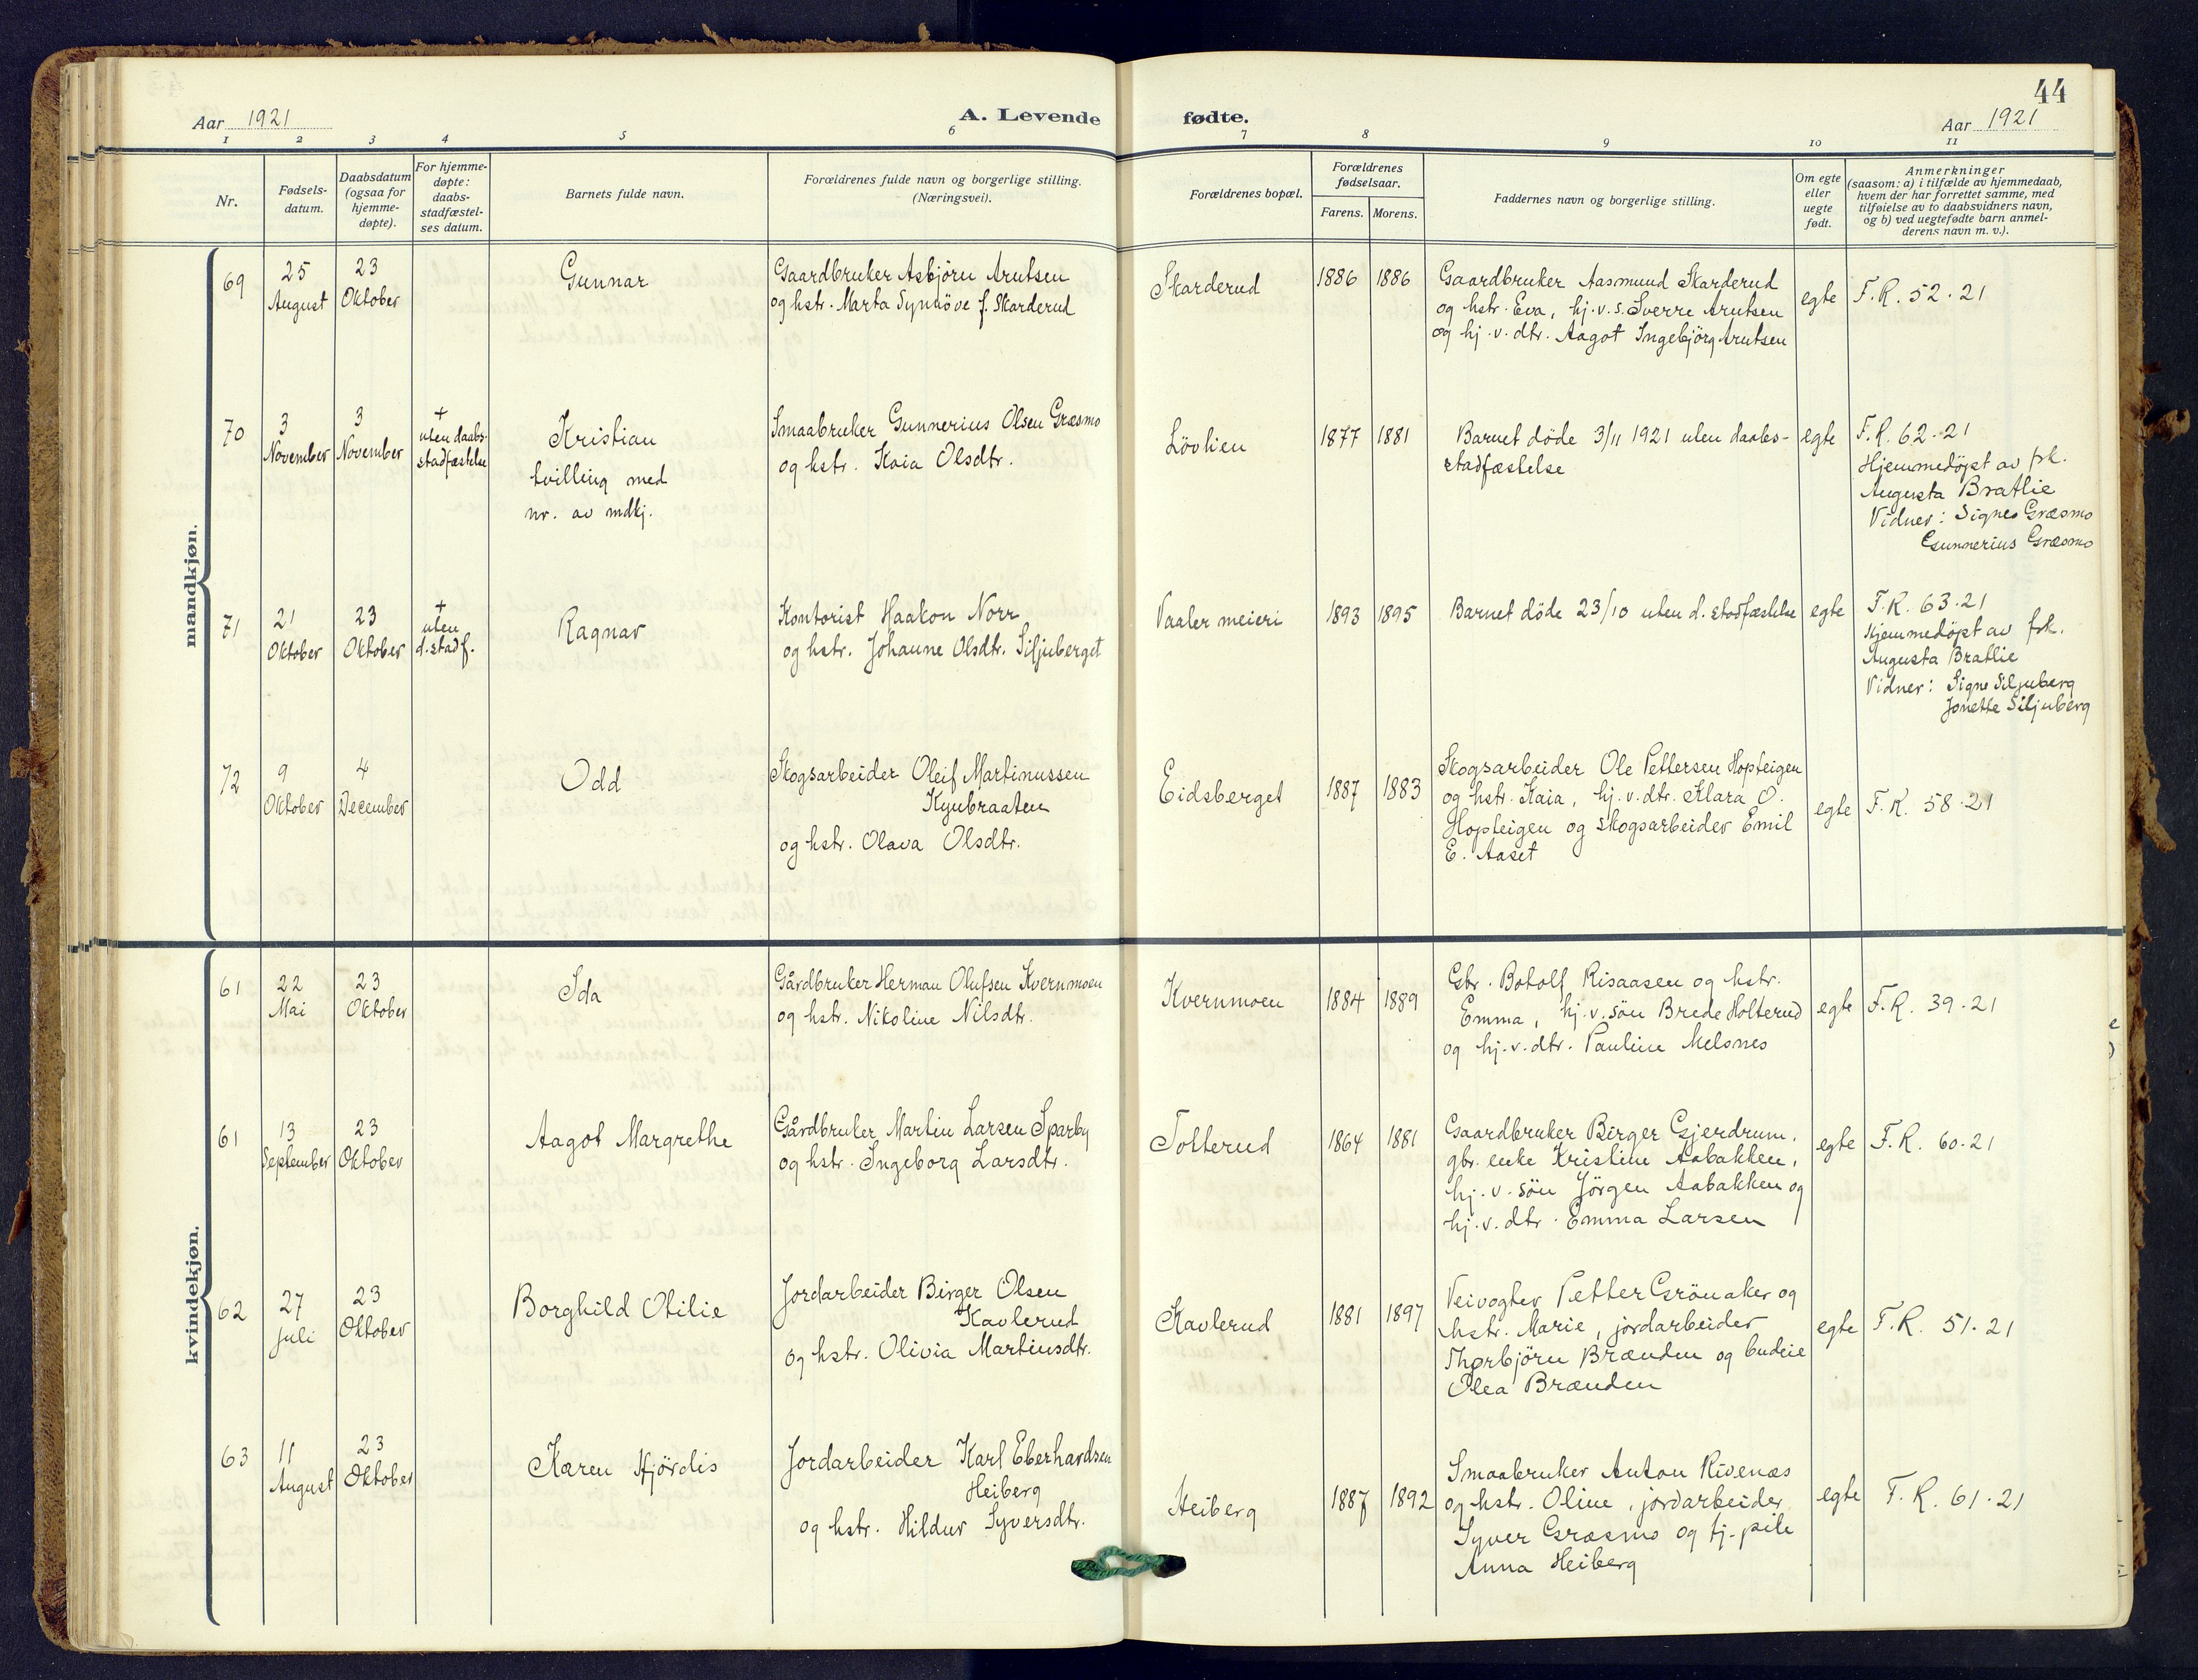 44
Aar 1921
A. Levende fødte.
Aar 1921
1 2 3 4 5 6 7 8 9 10 11
Nr.
Fødsels-
datum.
Daabsdatum
(ogsaa for
hjemme-
døpte).
For hjemme-
døpte:
daabs-
stadfæstel-
ses datum.
Barnets fulde navn.
Forældrenes fulde navn og borgerlige stilling.
(Næringsvei).
Forældrenes bopæl.
Forældrenes
fødselsaar.
Farens. Morens.
Faddernes navn og borgerlige stilling.
Om egte
eller
uegte
født.
Anmerkninger
(saasom: a) i tilfælde av hjemmedaab,
hvem der har forrettet samme, med
tilføielse av to daabsvidners navn,
og b) ved uegtefødte barn anmel-
derens navn m. v.).
mandkjøn.
69
25
August
23
Oktober
Gunnar
Gaardbruker Asbjörn Arntsen
og hstr. Marta Synnöve f. Skarderud
Skarderud
1886 1886
Gaardbruker Aasmund Skarderud
og hstr. Eva, hj.v.s. Sverre Arntsen
og hj.v.dtr. Aagot Ingebjörg Arntsen
egte
F.R. 52.21
70
3
November
3
November
+
uten daabs-
stadfæstelse
Kristian
tvilling med
nr. av mdkj.
Smaabruker Gunnerius Olsen Græsmo
og hstr. Kaia Olsdtr.
Lövlien
1877 1881
Barnet döde 3/11 1921 uten daabs-
stadfæstelse
egte
F.R. 62.21
Hjemmedöpt av frk.
Augusta Bratlie
Vidner: Signe Græsmo
Gunnerius Græsmo
71
21
Oktober
23
Oktober
+
uten
d.stadf.
Ragnar
Kontorist Haakon Norr
og hstr. Johanne Olsdtr. Siljuberget
Vaaler meieri
1893 1895
Barnet döde 23/10 uten d. stadfæstelse
egte
F.R. 63.21
Hjemmedöpt av frk.
Augusta Bratlie
Vidner: Signe Siljuberg
Jonette Siljuberg
72
9
Oktober
4
December
Odd
Skogsarbeider Oleif Martinussen
Kynbraaten
og hstr. Olava Olsdtr.
Eidsberget
1887 1883
Skogsarbeider Ole Pettersen Hopteigen
og hstr. Kaia, hj.v.dtr. Klara O.
Hopteigen og skogsarbeider Emil
E. Aaset
egte
F.R. 58.21
kvindekjøn.
61
22
Mai
23
Oktober
Ida
Gårdbruker Herman Olufsen Kvernmoen
og hstr. Nikoline Nilsdtr.
Kvernmoen
1884 1889
Gbr. Botolf Risaasen og hstr.
Emma, hj.v. sön Brede Holterud
og hj.v.dtr. Pauline Melsnes
egte
F.R. 39.21
61
13
September
23
Oktober
Aagot Margrethe
Gårdbruker Martin Larsen Sparby
og hstr. Ingeborg Larsdtr.
Tolterud
1864 1881
Gaardbruker Birger Gjerdrum,
gbr. enke Kristine Aabakken,
hj.v. sön Jörgen Aabakken og
hj.v.dtr. Emma Larsen
egte
F.R. 60.21
62
27
juli
23
Oktober
Borghild Otilie
Jordarbeider Birger Olsen
Kavlerud
og hstr. Olivia Martinsdtr.
Kavlerud
1881 1897
Veivogter Petter Grönaker og
hstr. Marie, jordarbeider
Thorbjörn Brænden og budeie
Olea Brænden
egte
F.R. 51.21
63
11
August
23
Oktober
Karen Hjördis
Jordarbeider Karl Eberhardsen
Heiberg
og hstr. Hildur Syversdtr.
Heiberg
1887 1892
Smaabruker Anton Rivenæs
og hstr. Oline, jordarbeider
Syver Græsmo og tj-pike
Anna Heiberg
egte
F.R. 61.21